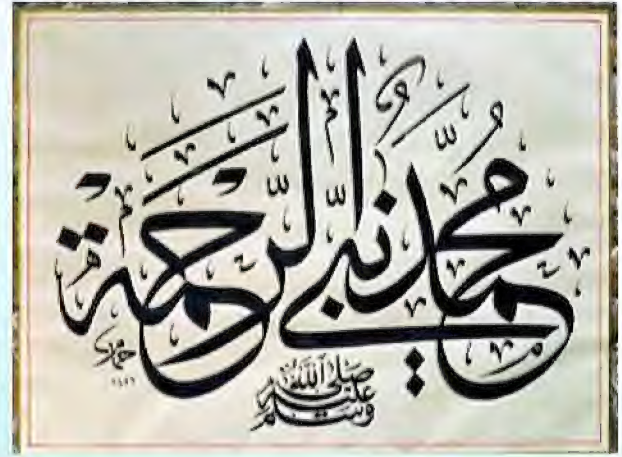 محمد نبي الرحمة
صلى الله
عليه
وسلم